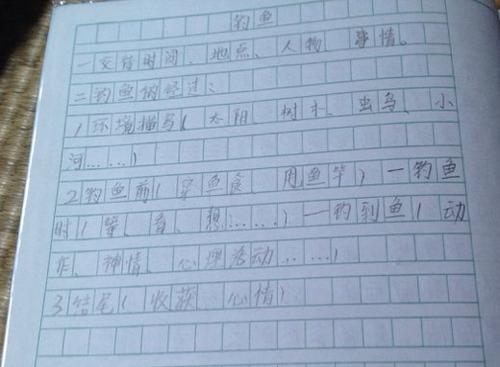 钓鱼
一交待时间、地点、人物 事情。
二钓鱼的经过:
1环境描写(太阳、树木、虫鸟、小
河......)
2钓鱼前(穿鱼食、甩鱼竿)一钓鱼
时(等、看、想......)一钓到鱼(动
作、神情、心理活动......)
3结尾(收获 心情)